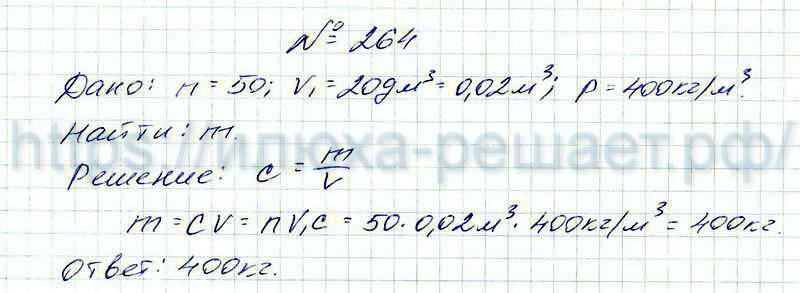 № 264
Дано: n = 50; V₁ = 20дм³ = 0,02м³; ρ = 400кг/м³.
Найти: m.
https://илюха-решает.рф/
Решение: c = m/V
m = cV = nV₁c = 50·0,02м³·400кг/м³ = 400кг.
Ответ: 400кг.